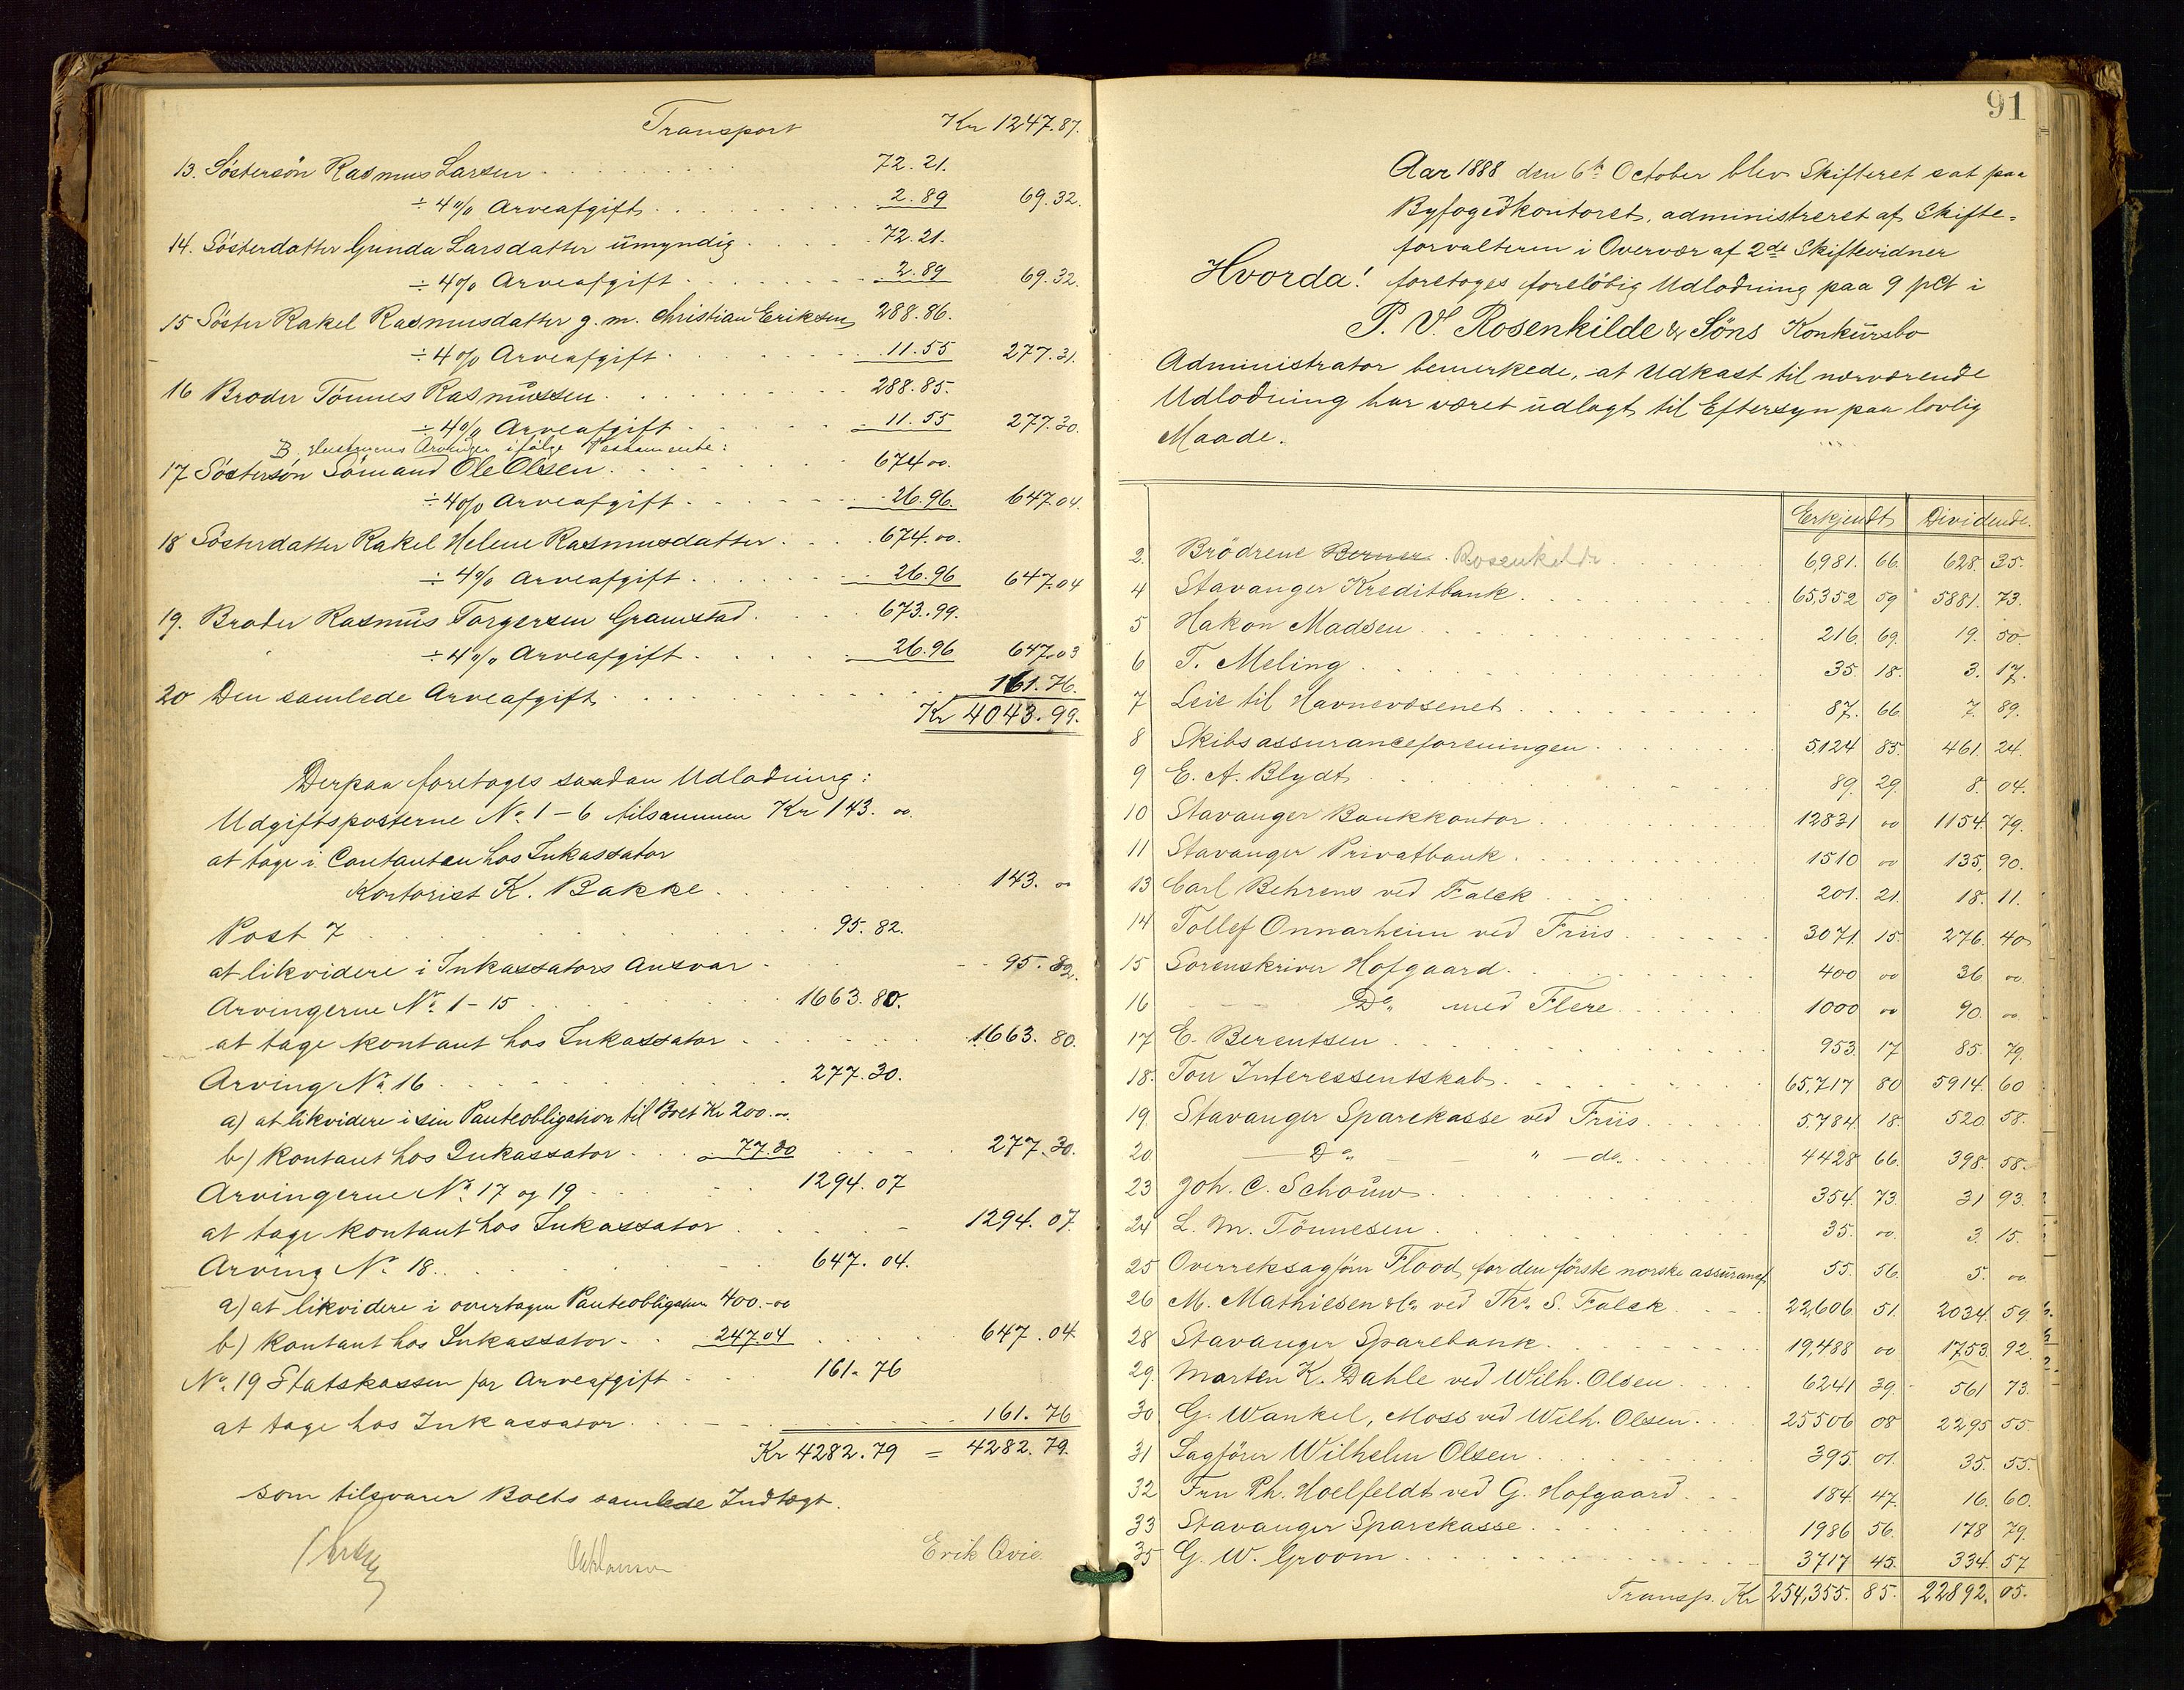 Transport Kr 1247.87.
13. Søstersøn Rasmus Larsen 72.21.
÷ 4% Arveafgift 2.89 69.32.
14. Søsterdatter Gunda Larsdatter umyndig 72.21.
÷ 4% Arveafgift 2.89 69.32.
15 Søster Rakel Rasmusdatter g. m. Christian Eriksen 288.86.
÷ 4% Arveafgift 11.55 277.31.
16 Broder Tönnes Rasmussen 288.85.
÷ 4% Arveafgift 11.55 277.30.
B. Hustruens Arvinger ifølge Testamente:
17 Søstersøn Sömand Ole Olsen 674.00.
÷ 4% Arveafgift 26.96. 647.04.
18 Søsterdatter Rakel Helene Rasmusdatter 674.00.
÷ 4% Arveafgift 26.96 647.04
19. Broder Rasmus Torgersen Gramstad 673.99.
÷ 4% Arveafgift 26.96 647.03
20 Den samlede Arveafgift 161.76.
Kr 4043.99.
Derpaa foretoges saadan Udlodning:
Udgiftsposterne No. 1-6 tilsammen Kr 143. 00.
at tage i Contanten hos Inkassator
Kontorist K. Bakke 143. 00
Post 7 95.82.
at likvidere i Inkassators Ansvar 95.82.
Arvingerne No. 1-15 1663.80.
at tage kontant hos Inkassator 1663.80.
Arving No. 16 277.30.
a) at likvidere i sin Panteobligation til Boet Kr 200.-
b) kontant hos Inkassator 77.30 277.30.
Arvingerne No. 17 og 19 1294.07
at tage kontant hos Inkassator 1294.07.
Arving No. 18. 647.04.
a) at likvidere i overtagen Panteobligation 400.-00
b) kontant hos Inkassator 247.04 647.04.
No. 19 Statskassen for Arveafgift 161.76
at tage hos Inkassator 161.76
Kr 4282.79 = 4282.79.
som tilsvarer Boets samlede Indtægt.
Erik Ovie.
91
Aar 1888 den 6te October blev Skifteret sat paa
Byfogedkontoret, administreret af Skifte-
forvalteren i Overvær af 2de Skiftevidner
Hvorda! foretoges foreløbig Udlodning paa 9 pCt i
P. V. Rosenkilde & Söns Konkursbo
Administrator bemerkede, at Udkast til nærværende
Udlodning har været udlagt til Eftersyn paa lovlig
Maade.
Erkjendt Dividende.
2. Brödrene Berner Rosenkilde 6981. 66. 628. 35.
4 Stavanger Kreditbank 65,352 59 5881. 73.
5 Hakon Madsen 216. 69. 19. 50
6 T. Meling 35. 18. 3. 17.
7 Leie til Havnevæsenet 87. 66. 7. 89.
8 Skibsassuranceforeningen 5,124 85. 461. 24.
9 E. A. Blydt 89. 29. 8. 04.
10 Stavanger Bankkontor 12831 00 1154. 79.
11 Stavanger Privatbank 1510 00 135. 90.
13 Carl Behrens ved Falck 201. 21. 18. 11.
14 Tollef Onnarheim ved Friis 3071. 15. 276. 40
15 Sorenskriver Hofgaard 400 00 36 00.
16 Do. med Flere 1000 00 90. 00.
17 E. Berentsen 953. 17 85. 79.
18. Tou Interessentskab 65,717 80 5914. 60
19. Stavanger Sparekasse ved Friis 5,784. 18. 520. 58.
20 Do. " do. 4428 66. 398. 58.
23 Joh. C. Schouw 354. 73. 31 93.
24 L. M. Tönnesen 35. 00. 3. 15.
25 Overretssagförer Flood, for den förste norske assurancef. 55. 56. 5. 00.
26 M. Mathiesen & Co. ved Ths. S. Falck 22,606. 51. 2034. 59
28 Stavanger Sparebank 19,488 00 1753. 92.
29. Morten K. Dahle ved Wilh. Olsen 6241 39. 561 73.
30 G. Wankel, Moss ved Wilh. Olsen 25506 08 2295 55.
31 Sagförer Wilhelm Olsen 395. 01. 35. 55.
32 Fru Ph. Hoelfeldt ved G. Hofgaard 184. 47. 16. 60.
33 Stavanger Sparekasse 1986 56. 178 79.
35 G. W. Groom 3717 45. 334. 57
Transp. Kr 254,355. 85. 22892. 05.